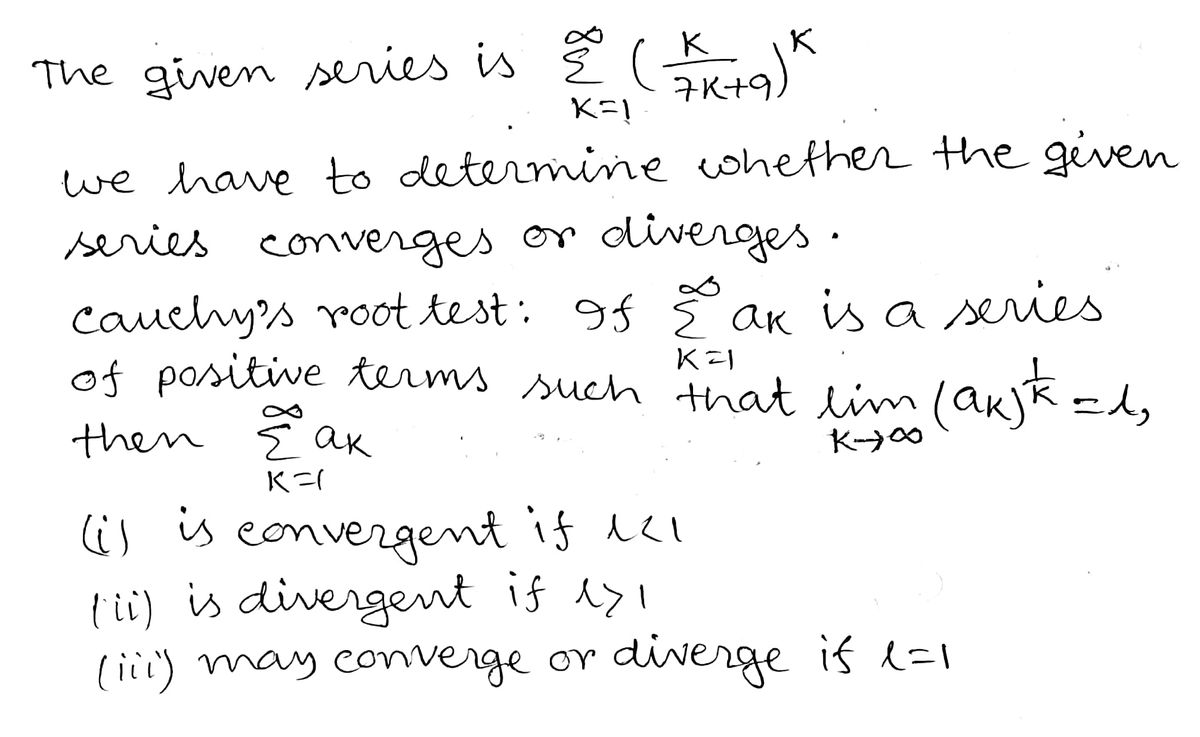 The given series is ∞ΣK=1 (K/7K+9)^K
we have to determine whether the given
series converges or diverges.
cauchy's root test: If ∞ΣK=1 aK is a series
of positive terms such that lim K→∞ (aK)^1/K = l,
then ∞ΣK=1 aK
(i) is convergent if l<1
(ii) is divergent if l>1
(iii) may converge or diverge if l=1